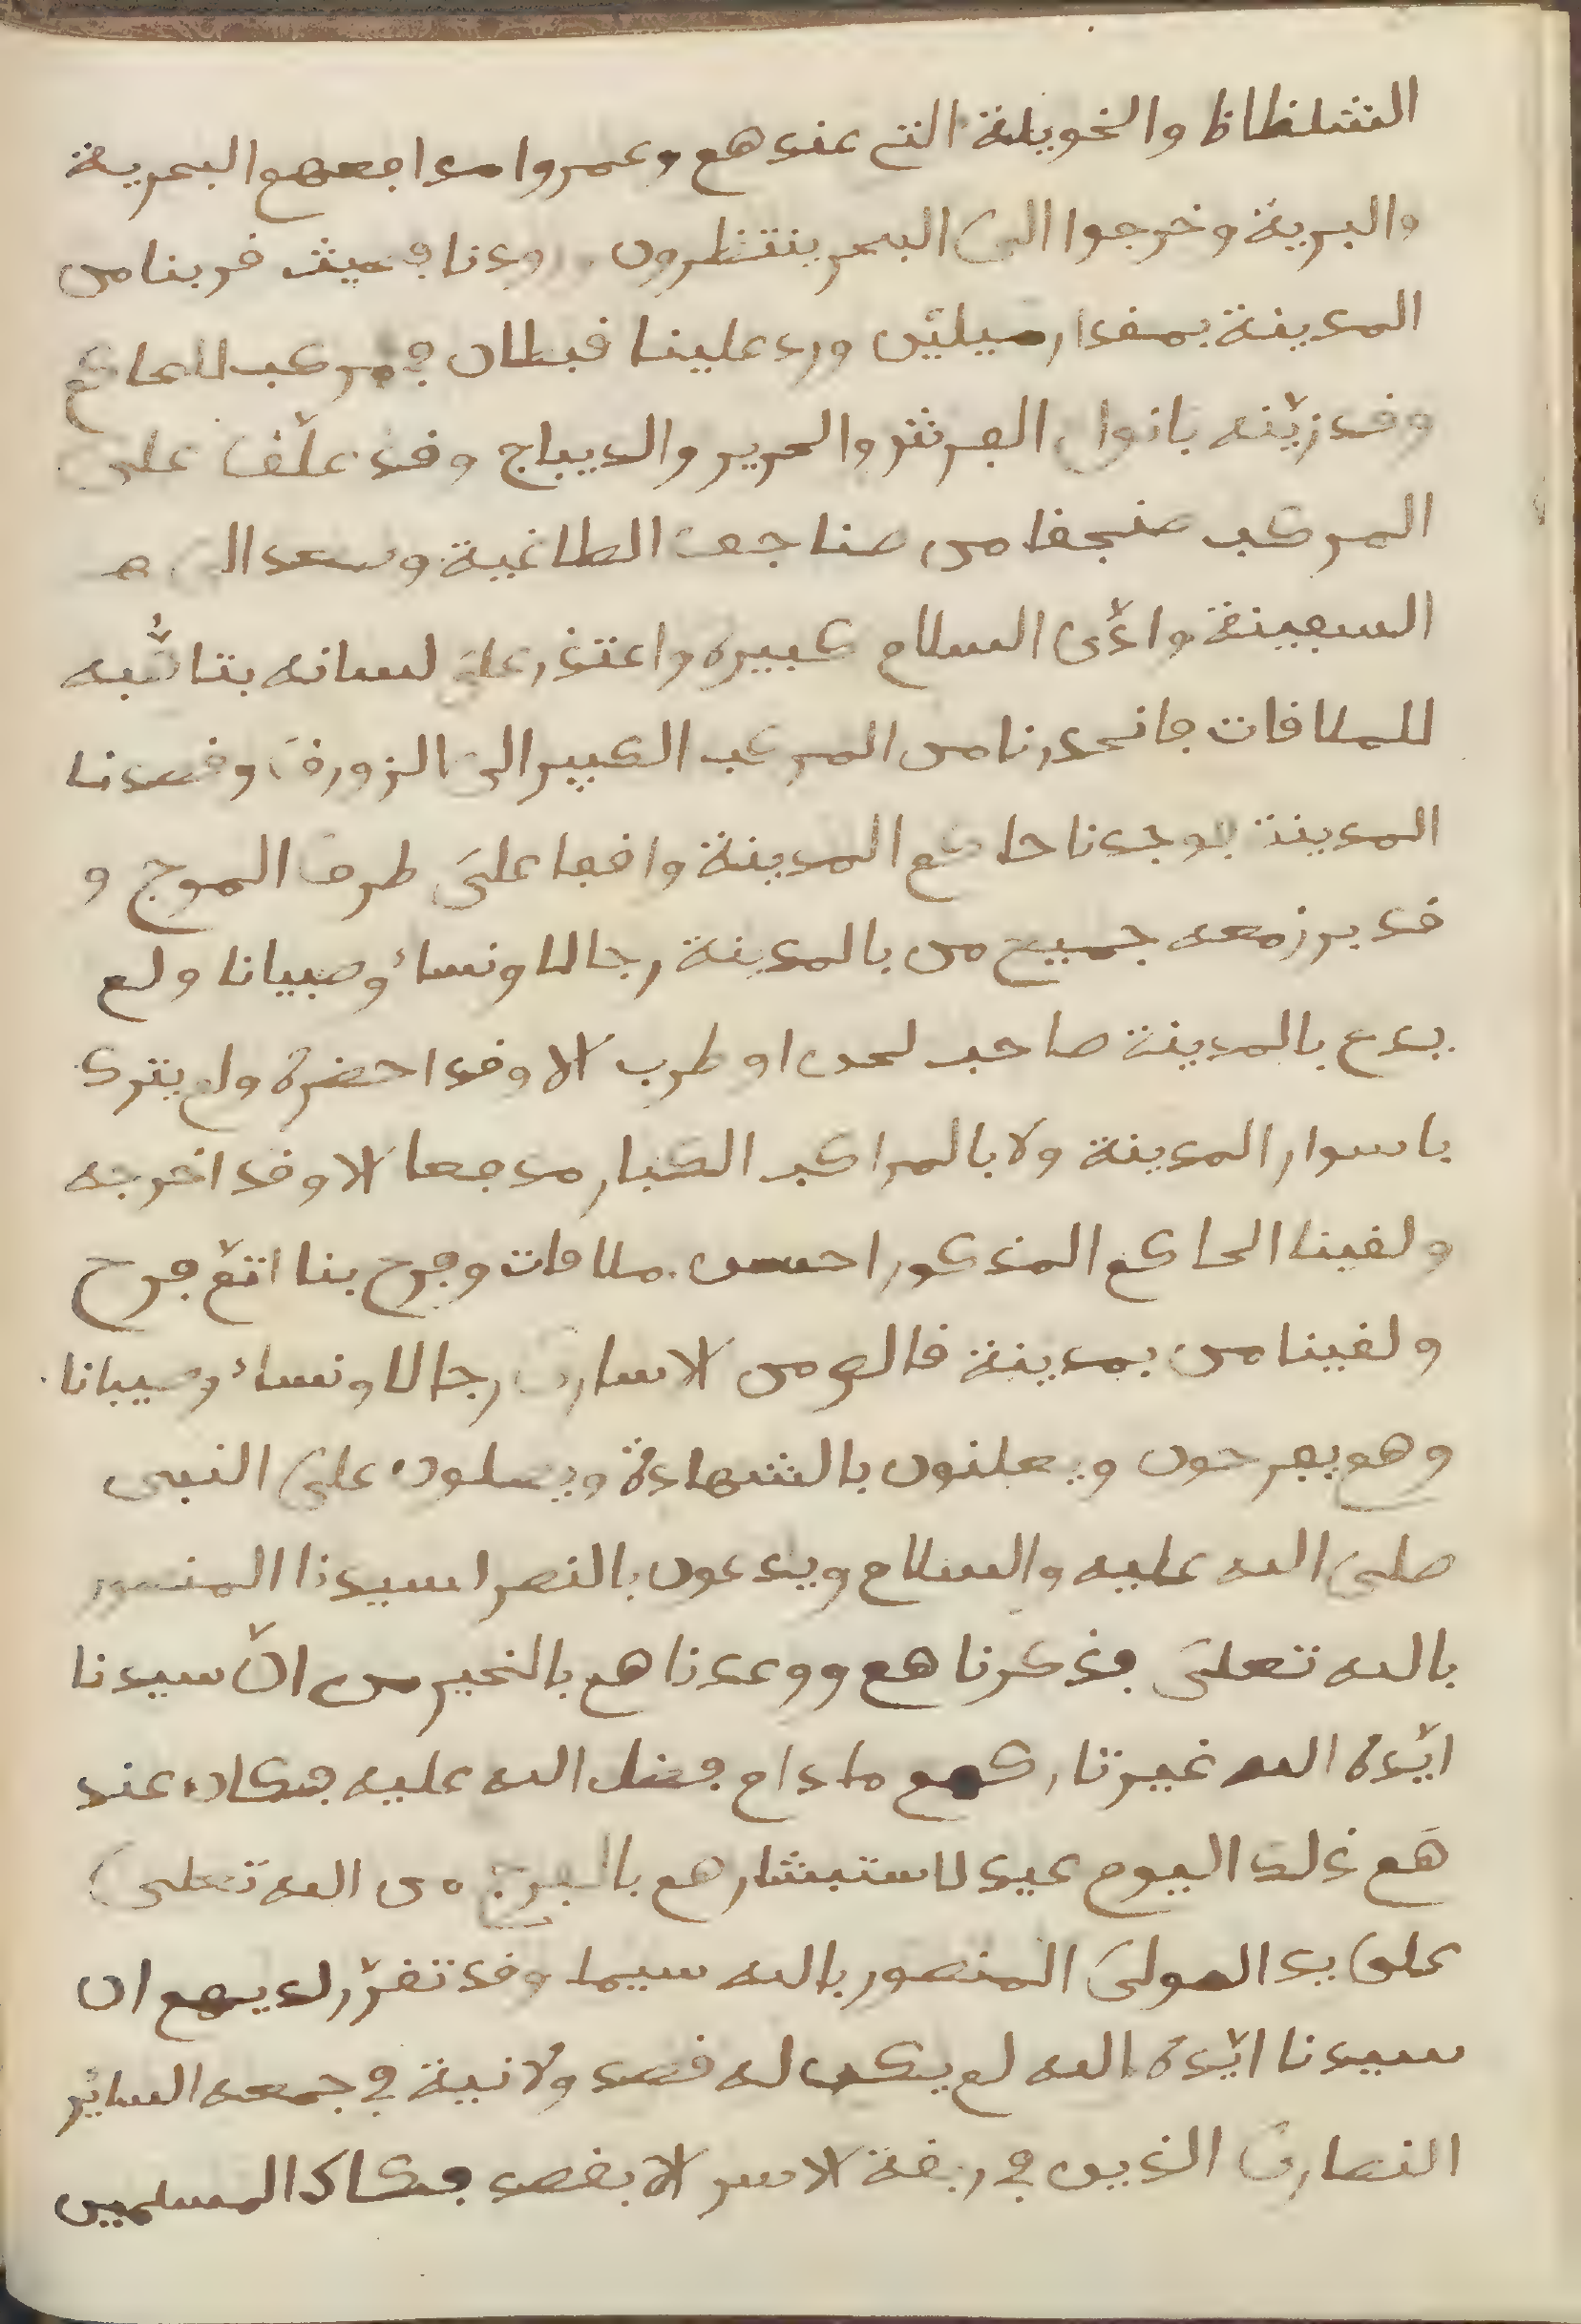 الشلظاظ والخويلة التي عندهم وعمروا مدافعهم البحرية
والبرية وخرجوا الى البحر ينتظرون ورودنا فحيث قربنا من
المدينة بمقدار ميلين ورد علينا قبطان في مركب للحاكم
وقد زيّنه بانواع الفرش والحرير والديباج وقد علّق على
المركب صنجقا من صناجق الطاغية وصعد الى
السفينة وادّى السلام كبيره واعتذر على لسانه بتاهّبه
للملاقات فانحدرنا من المركب الكبير الى الزورق وقصدنا
المدينة فوجدنا حاكم المدينة واقفا على طرف الموج و
قد برز معه جميع من بالمدينة رجالا ونساء وصبيانا ولم
يدع بالمدينة صاحب لحن او طرب الا وقد احضره ولم يترك
باسوار المدينة ولا بالمراكب الكبار مدفعا الا وقد اخرجه
ولقينا الحاكم المذكور احسن ملاقات وفرح بنا اتمّ فرح
ولقينا من بمدينة قالص من الاسارى رجالا ونساء وصبيانا
وهم يفرحون ويعلنون بالشهادة ويصلون على النبي
صلى الله عليه والسلام ويدعون بالنصر لسيدنا المنصور
بالله تعلى فذكرناهم ووعدناهم بالخير من انّ سيدنا
ايّده الله غير تاركهم ما دام فضل الله عليه فكان عند
هم ذلك اليوم عيد لاستبشارهم بالفرج من الله تعلى
على يد المولى المنصور بالله سيما وقد تقرّر لديهم ان
سيدنا ايّده الله لم يكن له قصد ولا نية في جمعه السائر
النصارى الذين في ربقة الاسر الا بقصد فكاك المسلمين